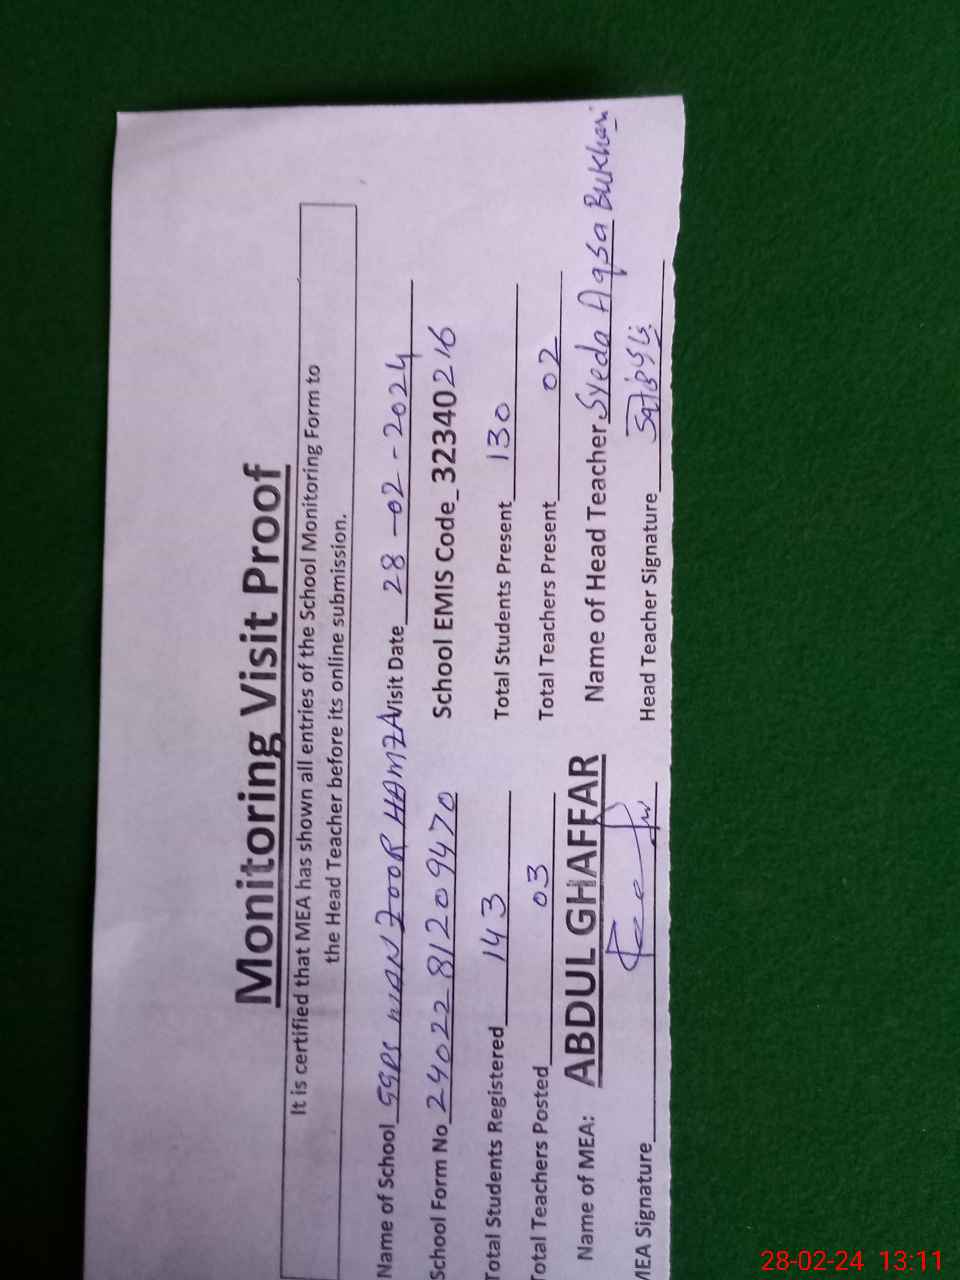 Monitoring Visit Proof
It is certified that MEA has shown all entries of the School Monitoring Form to
the Head Teacher before its online submission.
Name of School GGPS MANZOOR HAMZA Visit Date 28-02-2024
School Form No 2402281209470 School EMIS Code 32340216
Total Students Registered 143 Total Students Present 130
Total Teachers Posted 03 Total Teachers Present 02
Name of MEA: ABDUL GHAFFAR Name of Head Teacher Syeda Aqsa Bukhari
MEA Signature Head Teacher Signature
28-02-24 13:11